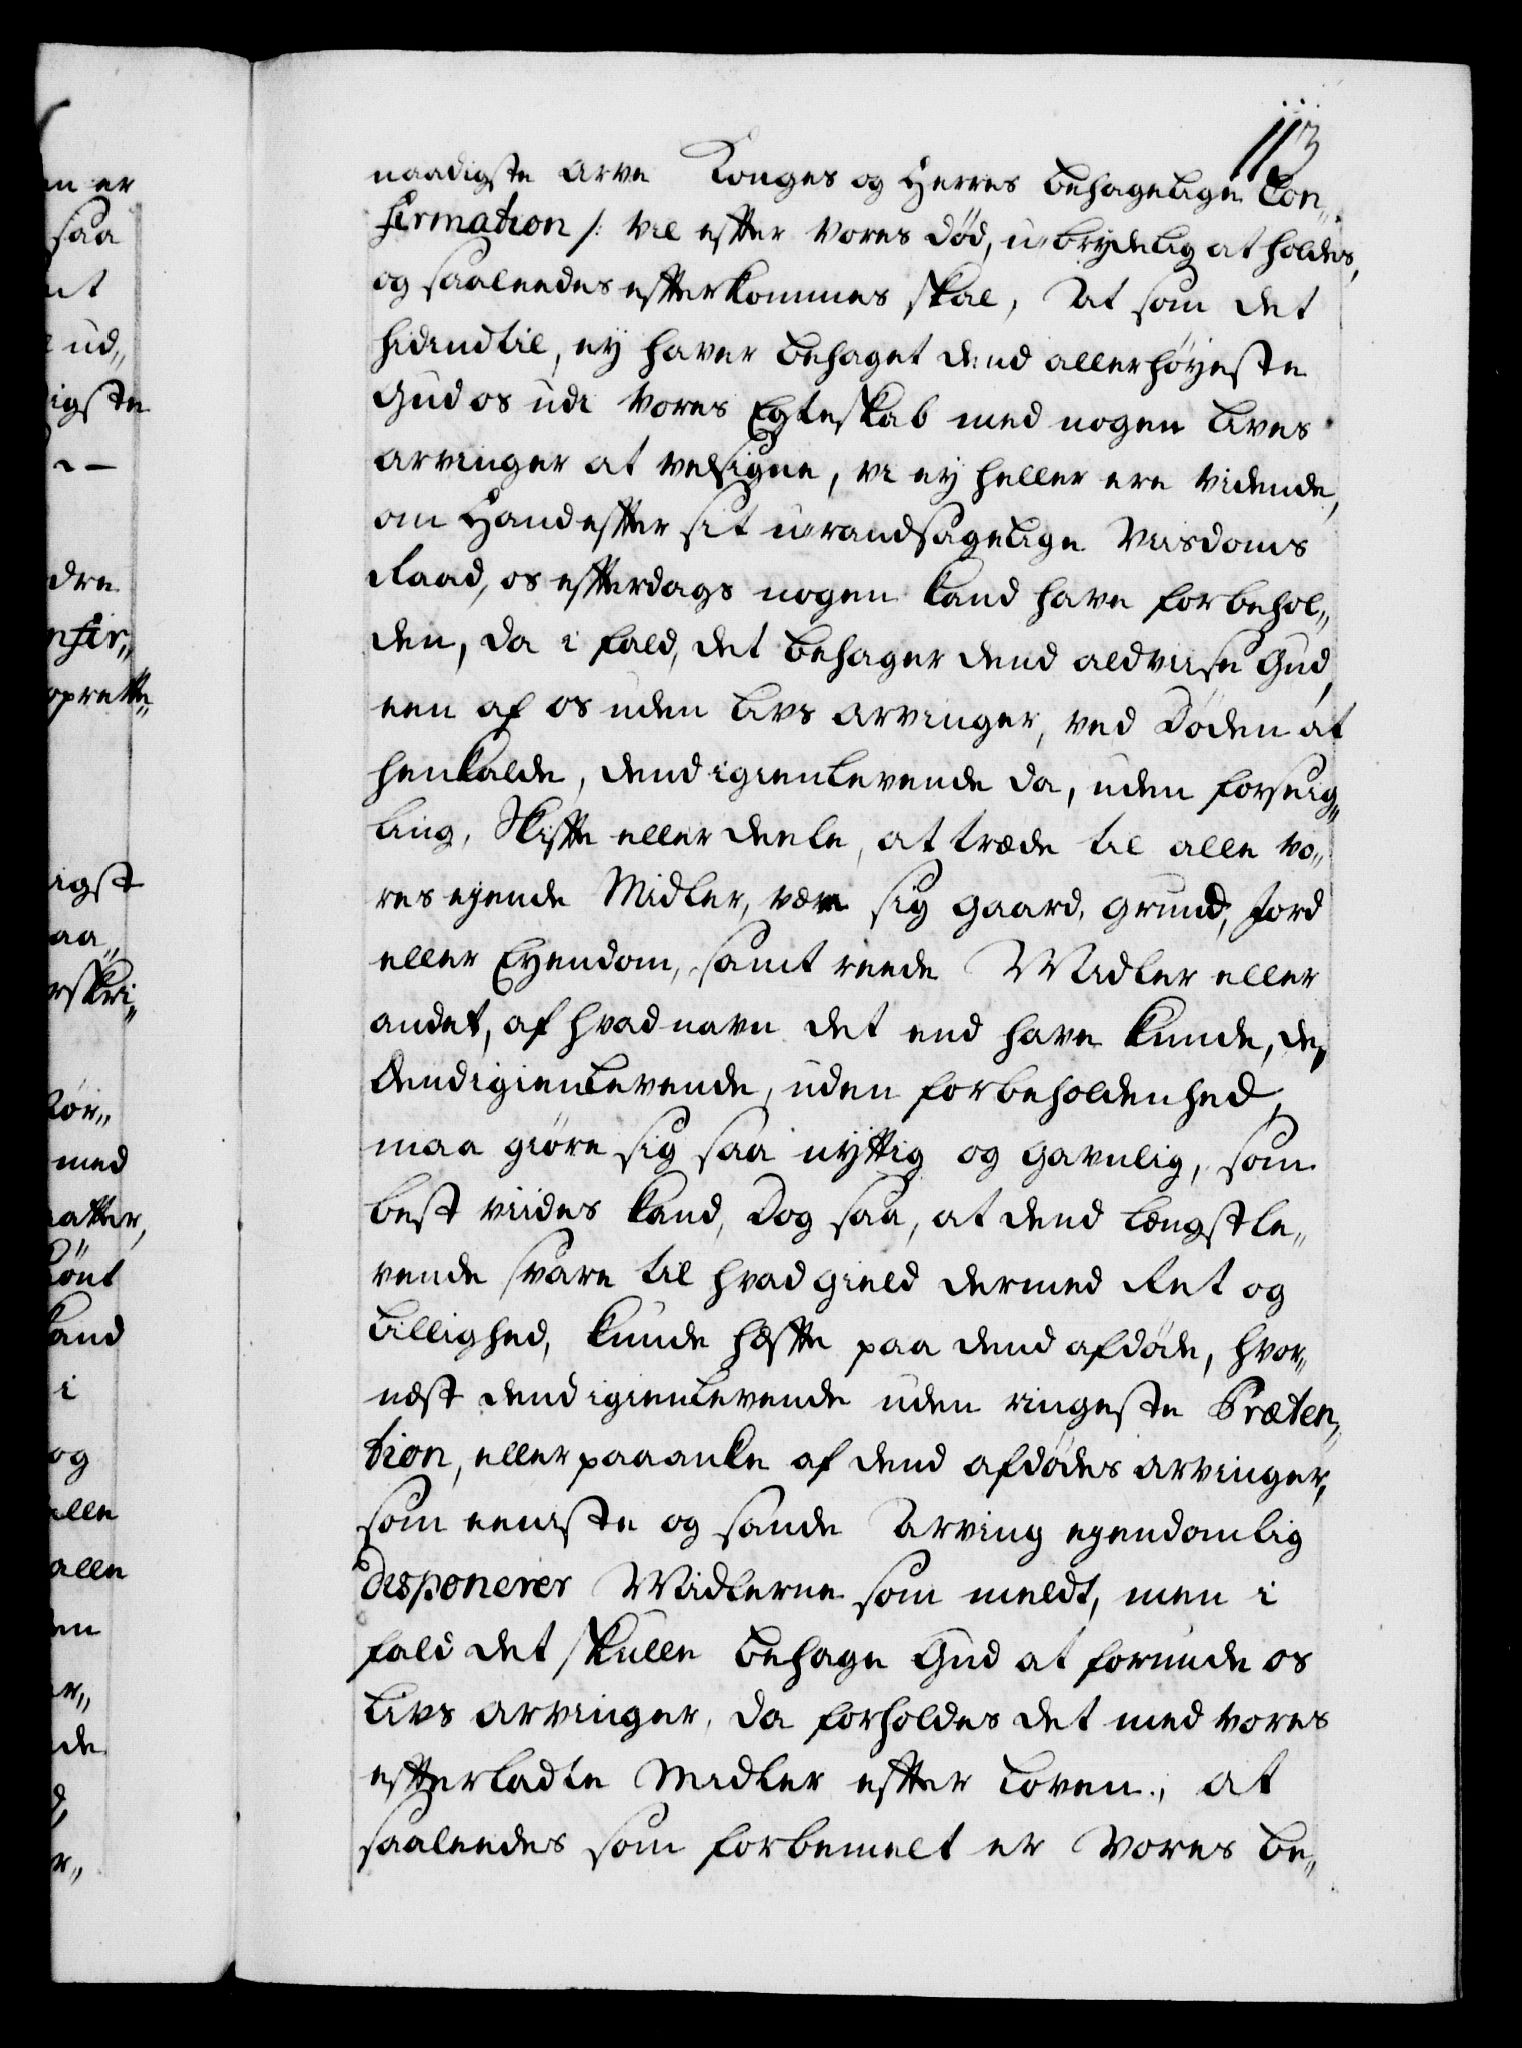 113
naadigste Arve Konges og Herres behagelige Con„
firmation /: vil effter vores Død, u-brydelig at holdes,
og saaleedes effterkommes skal, At som det
hidindtil, ey haver behaget dend allerhøyeste
Gud os udi vores Egteskab med nogen Lives
arvinger at velsigne, vi ey heller ere vidende,
om Hand effter sit u-randsagelige Viisdoms
Raad, os effterdags nogen kand have forbehol„
den, da i fald, det behager dend aldviise Gud,
een af os uden Livs arvinger, ved Døden at
henkalde, dend igienlevende da, uden forseig„
ling, Skiffte eller deele, at træde til alle vo„
res eyende Midler, være sig gaard, grund, Jord
eller Eyendom, samt reede Midler eller
andet, af hvad navn det end have kunde, de,
dend igienlevende, uden forbeholdenhed,
maa giøre sig saa nyttig og gavnlig, som
best viides kand, Dog saa, at dend længstle„
vende svare til hvad gield dermed Ret og
billighed, kunde hæffte paa dend afdøde, hvor„
næst dend igienlevende uden ringeste Præten„
tion, eller paaanke af dend afdødes arvinger,
som eeniste og sande Arving eyendomlig
disponerer Midlerne som meldt, men i
fald det skulle behage Gud at forunde os
Livs arvinger, da forholdes det med vores
effterladte Midler effter Loven, at
saaleedes som forbemelt er vores be„
en er
saa
ud„
igste
dre
nfir„
oprette„
igst
aa„
rskri„
med
atter,
kand
i
og
alle
alle
en
er„
de
r„